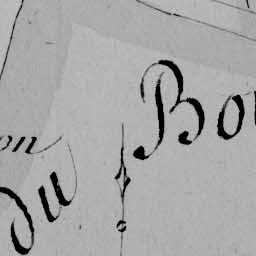 Bo
on
du